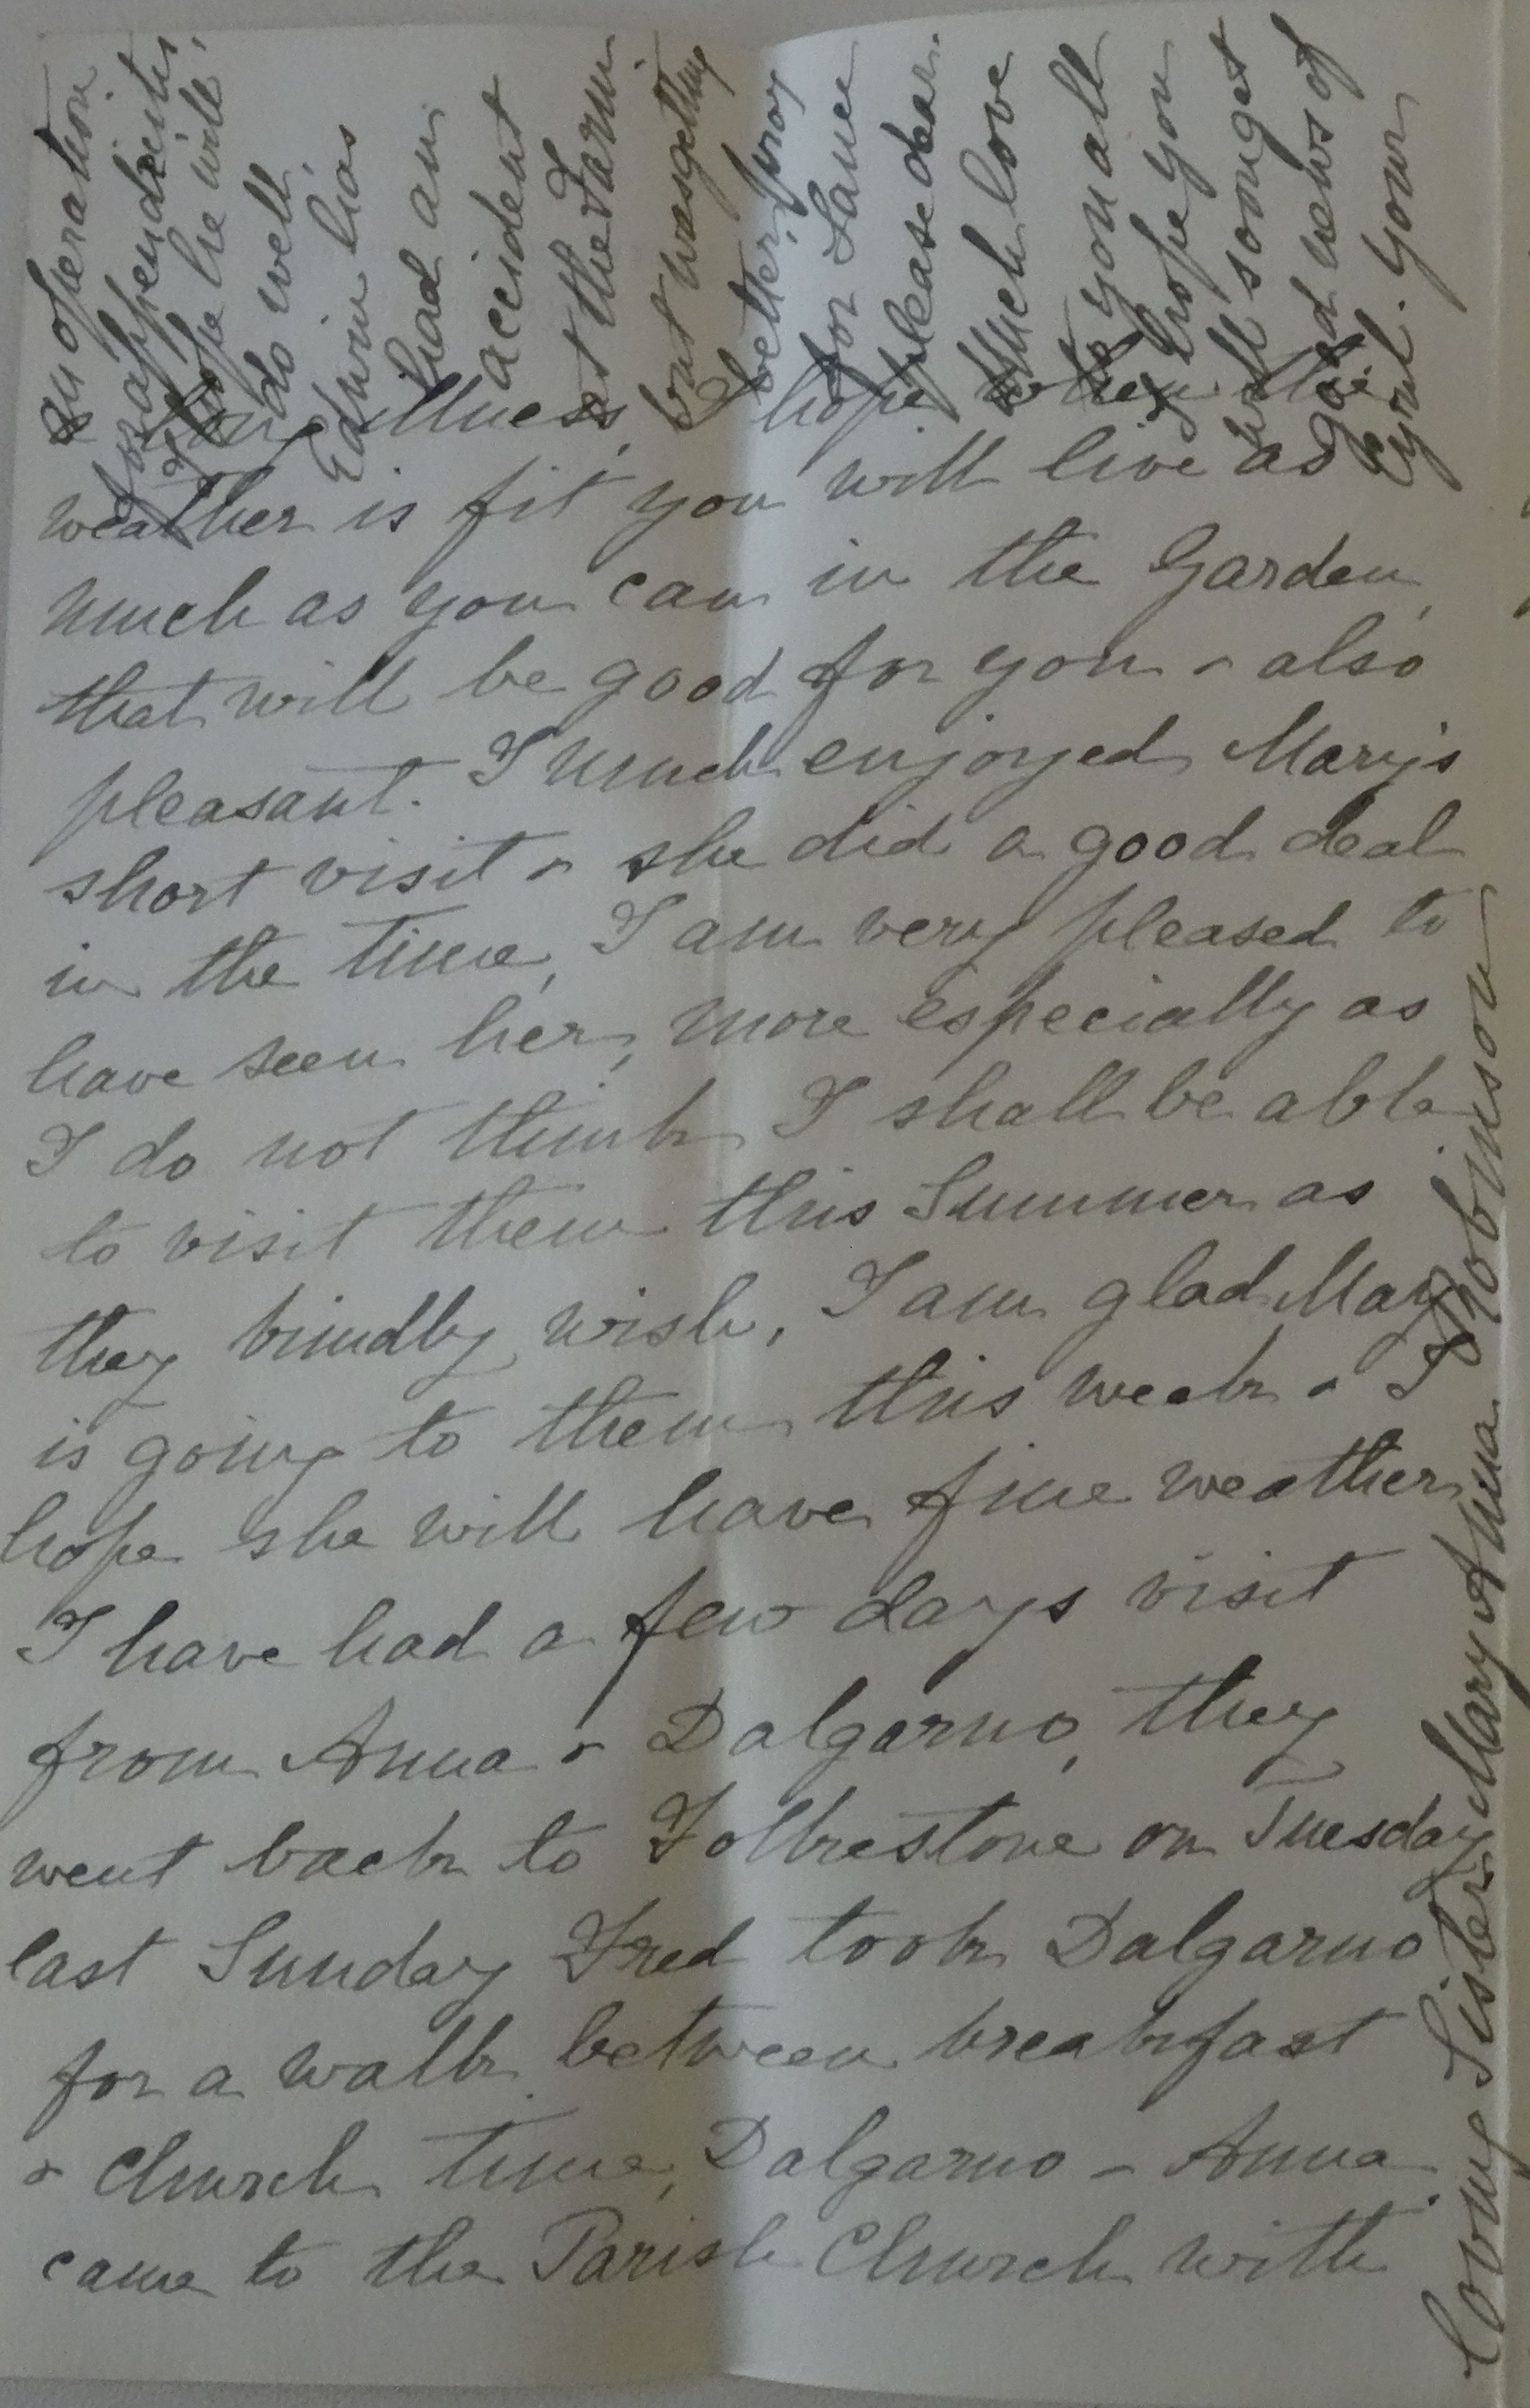 a long illness, I hope when the
weather is fit you will live as
much as you can in the Garden,
that will be good for you & also
pleasant. I much enjoyed Mary's
short visit & she did a good deal
in the time, I am very pleased to
have seen her, more especially as
I do not think I shall be able
to visit them this Summer as
they kindly wish, I am glad Mary
is going to them this week & I
hope she will have fine weather
I have had a few days visit
from Anna & Dalgarno, they
went back to Folkestone on Tuesday
last Sunday Fred took Dalgarno
for a walk between breakfast
& Church time, Dalgarno & Anna
came to the Parish Church with
an operation
for appendicitis,
I hope he will
do well,
Edwin has
had an
accident
at the Farm
but was getting
better, pray
for Lance
please dear.
Much love
to you all
& hope you
will soon get
good news of
Cyril. Your
loving Sister Mary Anna Robinson